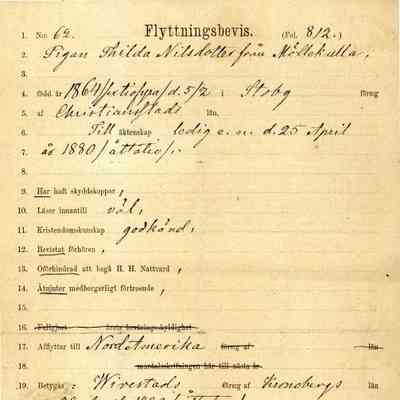 1. N:o 62. Flyttningsbevis. (Fol. 812.)
2. Pigan Thilda Nilsdotter från Möllekulla,
3.
4. född år 1864/sextiofyra/ d. 5/2 i Stoby förs:g
5. af Christianstads län.
6. Till äktenskap ledig e. m. d. 25 April
7. år 1880/åttatio/.
8.
9. Har haft skyddskoppor,
10. Läser innantill väl,
11. Kristendomskunskap godkänd,
12. Bevistat förhören,
13. Oförhindrad att begå H. H. Nattvard,
14. Åtnjuter medborgerligt förtroende,
15.
16. Fullgjort årets bevärings­skyldighet
17. Afflyttar till Nord Amerika förs:g af län
18. mantalsskrifningen här till nästa år.
19. Betygas: Wirestads förs:g af Kronobergs län